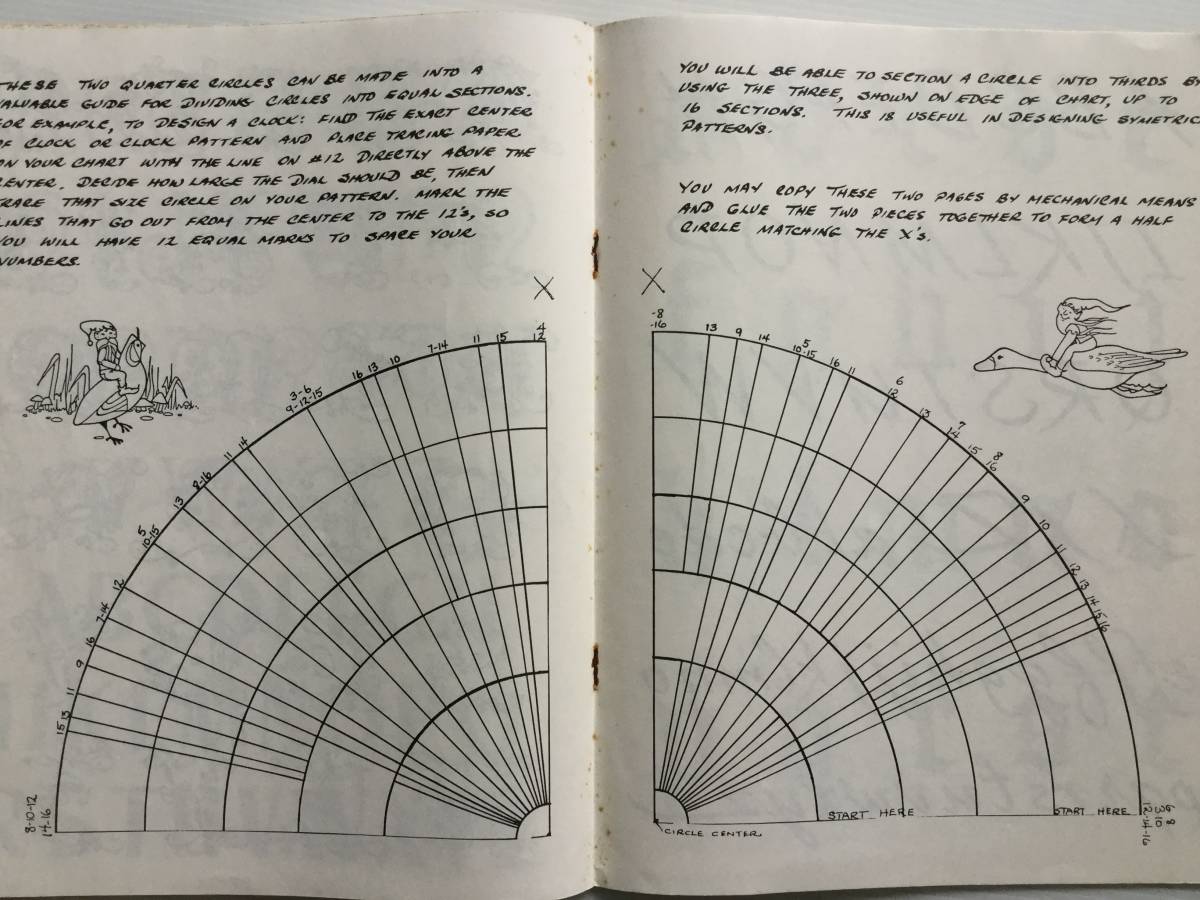 THESE TWO QUARTER CIRCLES CAN BE MADE INTO A
VALUABLE GUIDE FOR DIVIDING CIRCLES INTO EQUAL SECTIONS.
FOR EXAMPLE, TO DESIGN A CLOCK: FIND THE EXACT CENTER
OF CLOCK OR CLOCK PATTERN AND PLACE TRACING PAPER
ON YOUR CHART WITH THE LINE ON #12 DIRECTLY ABOVE THE
CENTER. DECIDE HOW LARGE THE DIAL SHOULD BE, THEN
TRARE THAT SIZE CIRCLE ON YOUR PATTERN. MARK THE
LINES THAT GO OUT FROM THE CENTER TO THE 12'S, SO
YOU WILL HAVE 12 EQUAL MARKS TO SPACE YOUR
NUMBERS.
X
4
12
15
11
7-14
10
13
16
3-6
9-12-15
14
11
8-16
13
5
10-15
12
7-14
16
9
11
13
15
8-10-12
14-16
YOU WILL BE ABLE TO SECTION A CIRCLE INTO THIRDS BY
USING THE THREE, SHOWN ON EDGE OF CHART, UP TO
16 SECTIONS. THIS IS USEFUL IN DESIGNING SYMETRIC
PATTERNS.
YOU MAY COPY THESE TWO PAGES BY MECHANICAL MEANS
AND GLUE THE TWO PIECES TOGETHER TO FORM A HALF
CIRCLE MATCHING THE X'S.
X
-8
-16
13
9
14
10
5
15
16
11
6
12
13
7
14
15
8
16
9
10
11
12
13
14
15
16
START HERE
START HERE
CIRCLE CENTER
12-14-16